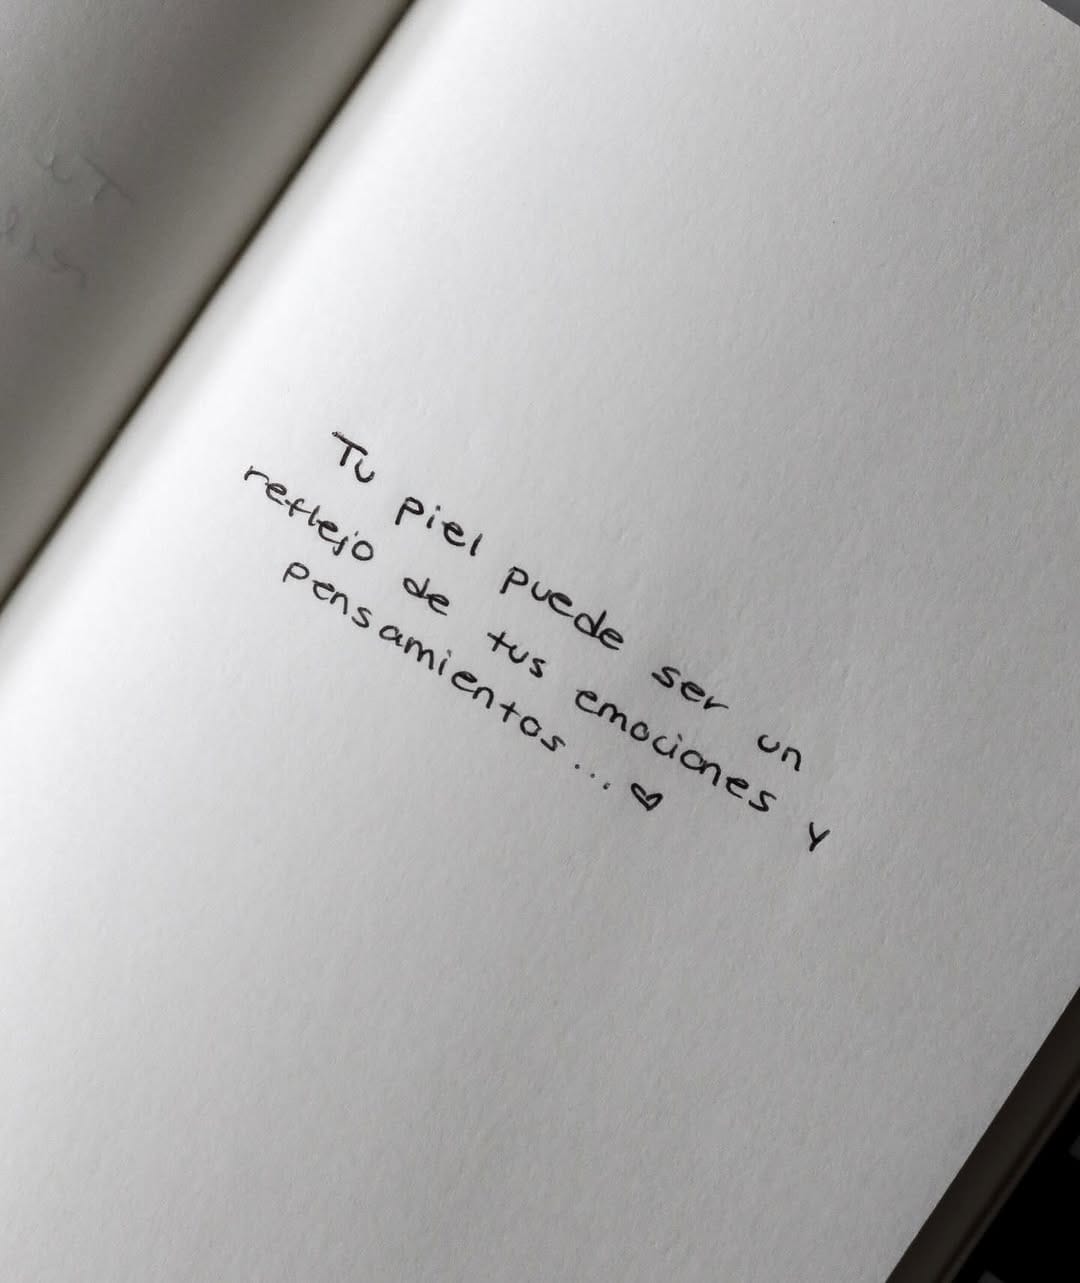 Tu piel puede ser un
reflejo de tus emociones y
pensamientos... ♥